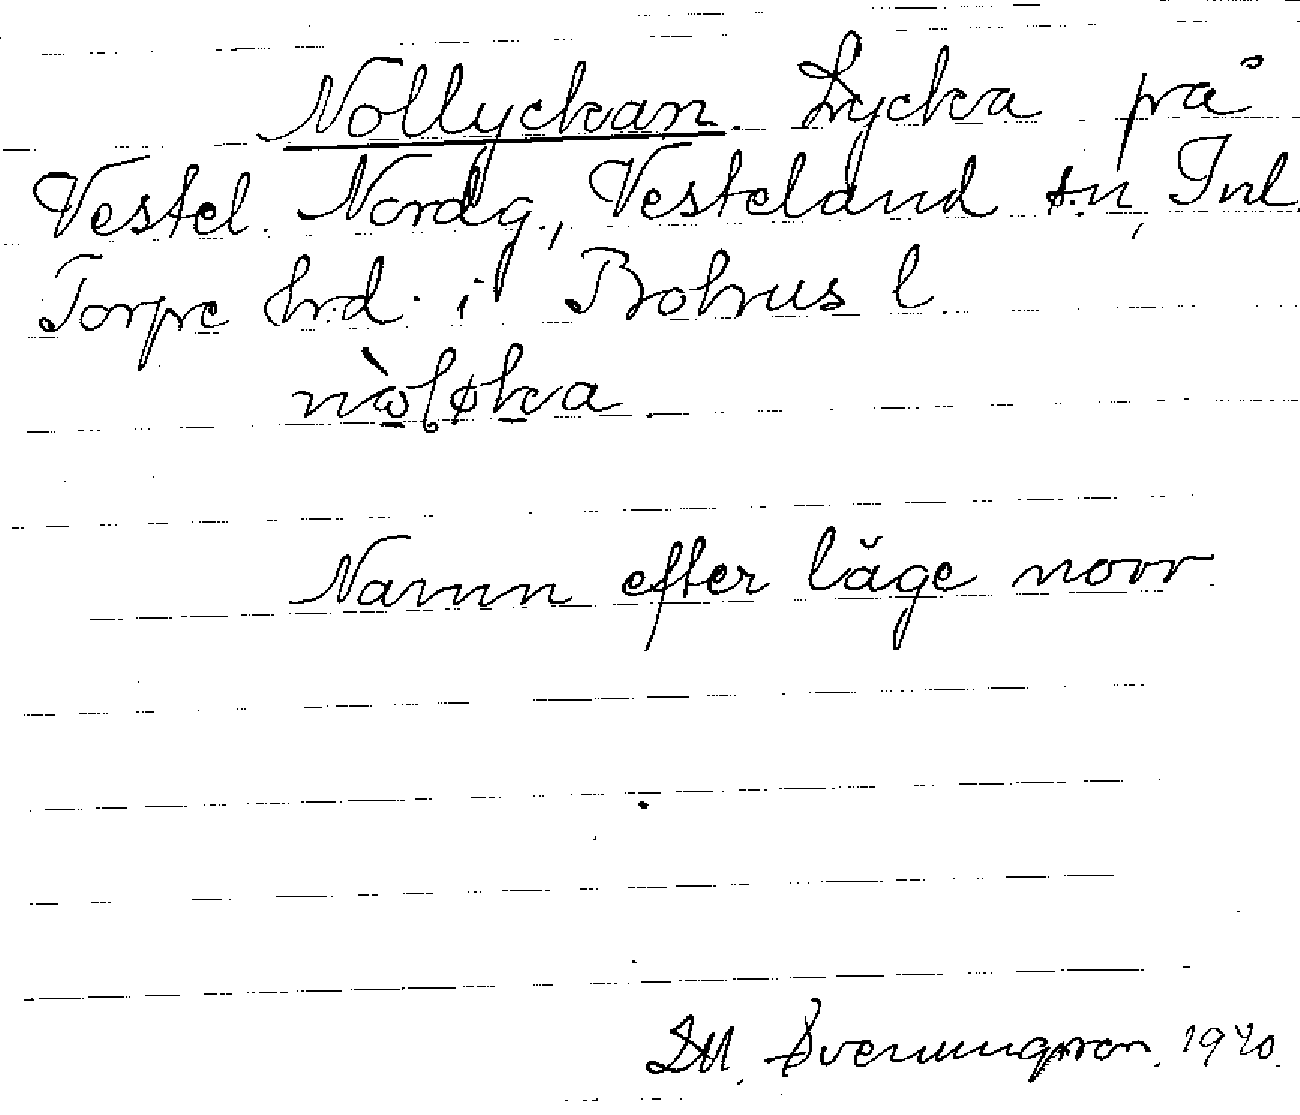 Nollyckan. Lycka på
Vestel. Nordg., Vesteland sn, Inl.
Torpe hrd. i Bohus l.
Namn efter läge norr.
Svenungson. 1940.